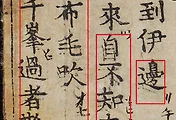 到伊邊
來直不知
布毛吹
峯過者